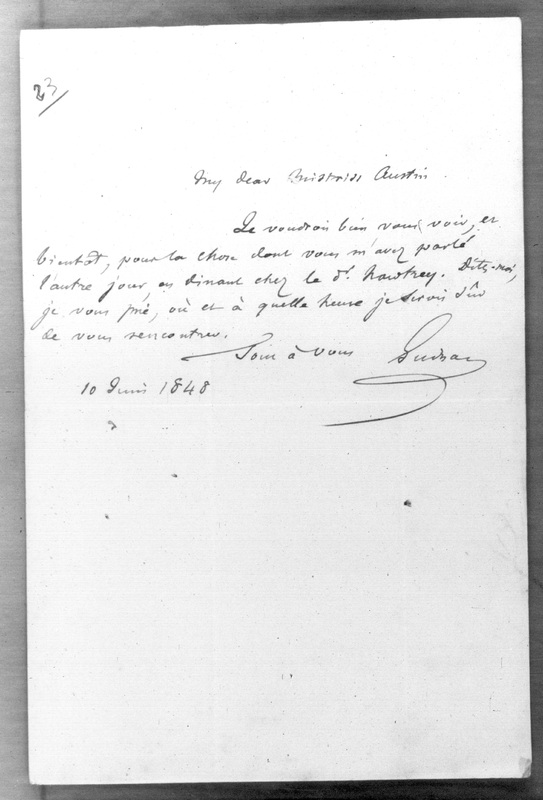 23
My dear Austin
Je voudrois bien vous voir, et
bientôt, pour la chose dont vous m'avez parlé
l'autre jour, en dinant chez le Dr. Hawtrey. Dites-moi,
je vous prie, où et à quelle heure je serois sûr
de vous rencontrer.
Tout à vous Guizot
10 Juin 1848